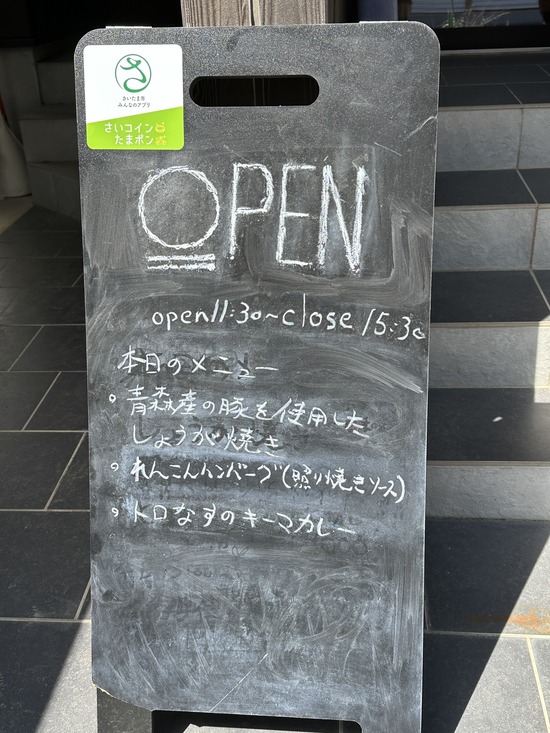 さいたま市
みんなのアプリ
さいコイン
たまポン
OPEN
open11:30~close 15:30
本日のメニュー
。青森産の豚を使用した
しょうが焼き
。れんこんハンバーグ(照り焼きソース)
。トロなすのキーマカレー